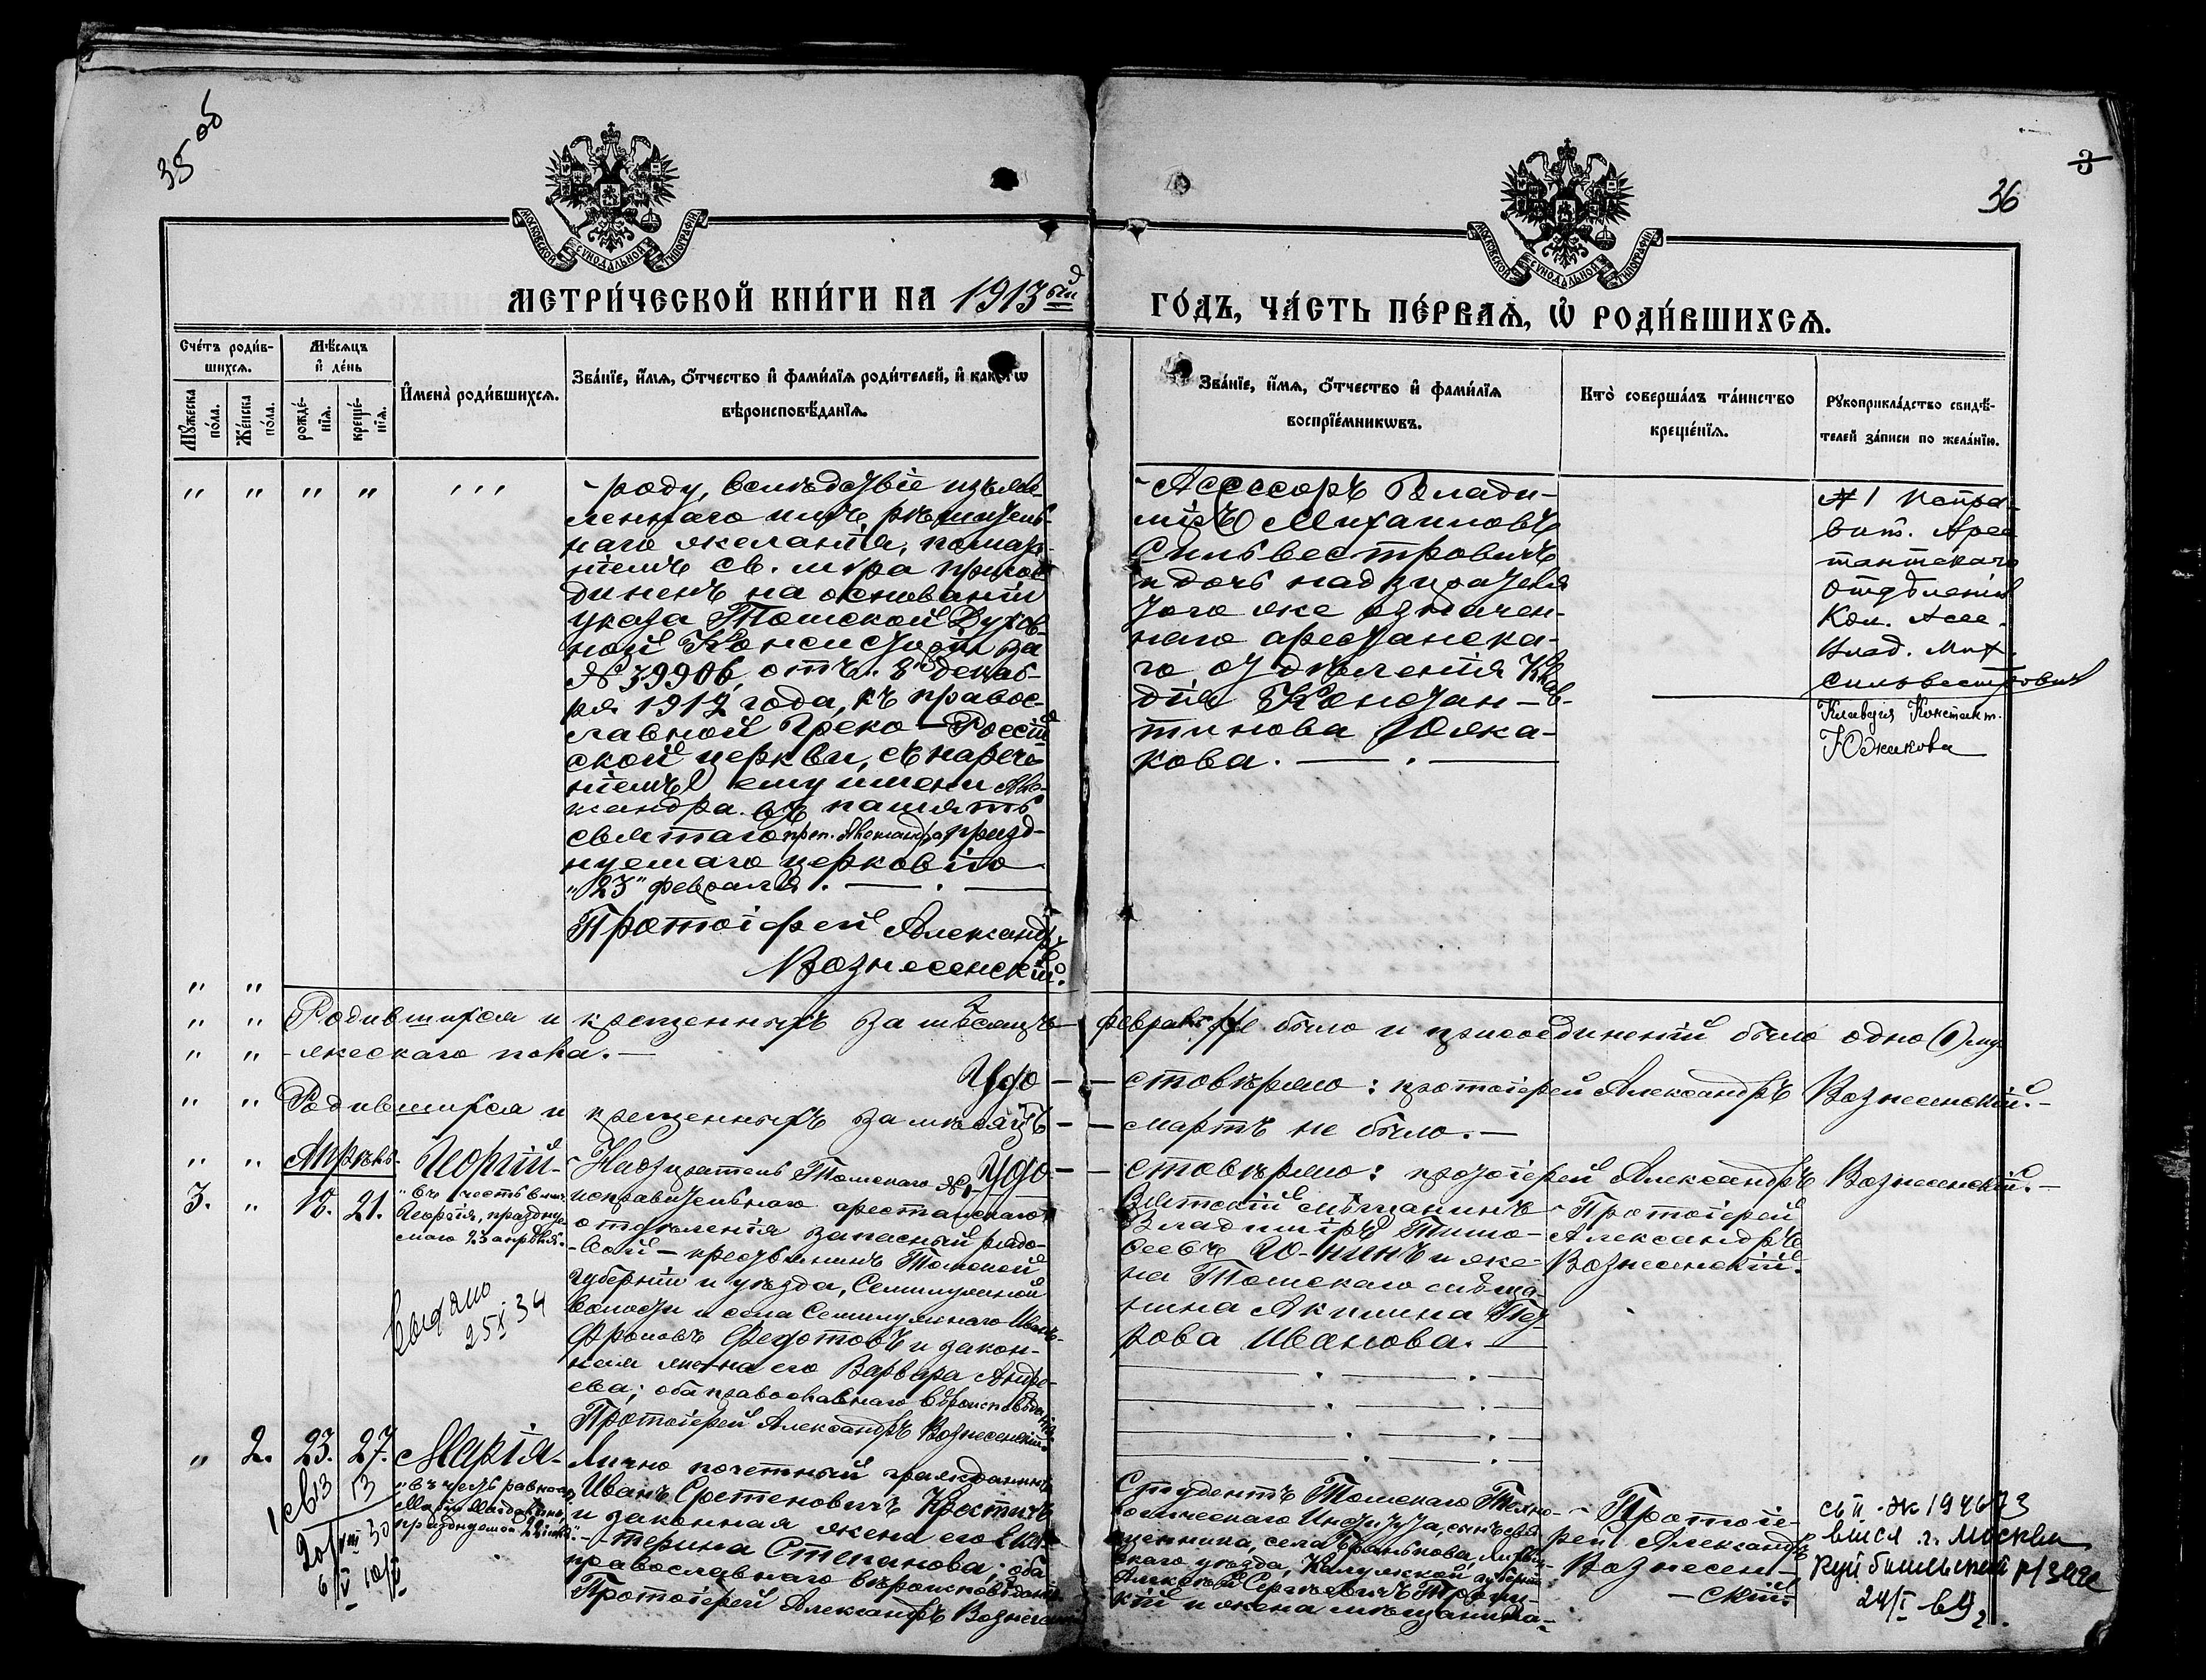 35 об
3
36
МОСКОВСКОЙ СѴНОДАЛЬНОЙ ТИПОГРАФІИ
МОСКОВСКОЙ СѴНОДАЛЬНОЙ ТИПОГРАФІИ
МЕТРИ́ЧЕСКОЙ КНИ́ГИ НА 1913
ГО́ДЪ, ЧА́СТЬ ПЕ́РВАѦ, Ѡ҆ РОДИ́ВШИХСѦ.
Сче́тъ роди́в-
шихсѧ.
Мꙋжеска
по́ла.
Же́нска
по́ла.
Мѣ́сѧцъ
и҆ де́нь
рожде́-
нїѧ.
креще́-
нїѧ.
И҆мена̀ роди́вшихсѧ.
Зва́нїе, и҆́мѧ, ѻ҆́тчество и҆ фами́лїѧ роди́телей, и҆ како́гѡ
вѣроисповѣ́данїѧ.
Зва́нїе, и҆́мѧ, ѻ҆́тчество и҆ фами́лїѧ
воспрїе́мникѡвъ.
Кто̀ соверша́лъ та́инство
креще́нїѧ.
Рꙋкоприкла́дство свидѣ́-
телей за́писи по жела́нїю.
- роду, вслѣдствіе изъяв-
леннаго имъ рѣшитель-
наго желанія, помаза-
ніемъ св. мѵра присое-
диненъ на основаніи
указа Томской Духов-
ной Консисторіи за
№ 39906, отъ 8 декаб-
ря 1912 года, къ правос-
лавной Греко-Россій
ской церкви, съ нарече-
ніемъ ему имени Але-
ксандра въ память
святаго преп. Александра, празд-
нуемаго церковію
"23" февраля.
Протоіерей Александръ
Вознесенскій.
- Ассесоръ Влади-
міръ Михаиловъ
Сильвестровичъ
и дочь надзирателя
того же означен-
наго арестантска-
го отдѣленія Клав-
дія Констан-
тинова Южа-
кова.
№ 1 Испра-
вит. Арес
тантскаго
отдѣленія
Кол. Ассе.
Влад. Мих.
Сильвестрович
Клавдія Констант.
Южакова
Родившихся и крещенныхъ за мѣсяцъ февраль не было и присоединеній было одно (1) му-
- жескаго пола.
Удо - - стовѣряю: протоіерей Александръ Вознесенскій.
Родившихся и крещенныхъ за мѣсяцъ - - мартъ не было.
Удо - - стовѣряю: протоіерей Александръ Вознесенскій.
Апрѣль.
3. " 18. 21.
Георгій -
"въ честь вмч.
Георгія, праздну-
емаго 23 апрѣля.
Выдано
25 X 34
- Надзиратель Томскаго № 1
исправительнаго арестантскаго
отдѣленія запасный рядо-
вой - крестьянинъ Томской
губерніи и уѣзда, Семилужной
волости и села Семилужнаго
Фроловъ Федотовъ и закон-
ная жена его Варвара Андре-
ева; оба православнаго вѣроисповѣданія
Протоіерей Александръ Вознесенскій.
Вятскій мѣщанинъ
Владиміръ Тимо-
феевъ и же-
на Томскаго мѣща-
нина Акилина Пет
рова Иванова.
- Протоіерей
Александръ
Вознесенскій.
" 2. 23. 27.
Марія -
"въ честь равноап.
Маріи Магдалины,
празднуемой 22 іюля".
Лично почетный гражданинъ
Иванъ Сретеновичъ
и законная жена его Ека-
- терина Степанова; оба
православнаго вѣроисповѣданія
Протоіерей Александръ Вознесенскій
Студентъ Томскаго Техно-
логическаго Института, сынъ свя
щенника, села
скаго уѣзда, Калужской губерніи
Алексѣй Сергѣевичъ Троиц-
кій и жена мѣщанина-
- Протоіе-
рей Александръ
Вознесен-
- скій.
св II-ЖК 194673
г. Москвы
р/загс